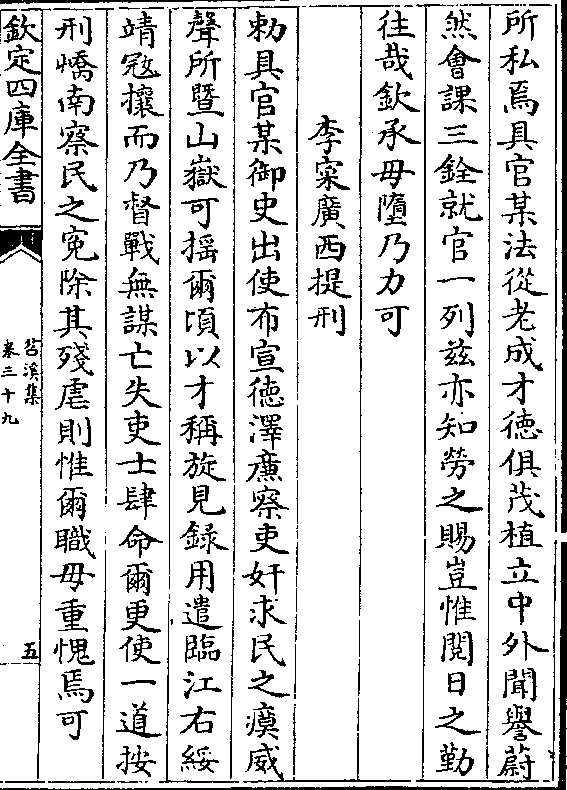 所私焉具官某法從老成才徳俱茂植立中外聞譽蔚
然會課三銓就官一列兹亦知勞之賜豈惟閱日之勤
往哉欽承毋墮乃力可
李寀廣西提刑
勅具官某御史出使布宣徳澤亷察吏奸求民之瘼威
聲所暨山嶽可揺爾頃以才稱旋見録用遣臨江右綏
靖宼攘而乃督戰無謀亡失吏士肆命爾更使一道按
刑嶠南察民之寃除其殘虐則惟爾職毋重愧焉可
欽定四庫全書
苕溪集
卷三十九
五